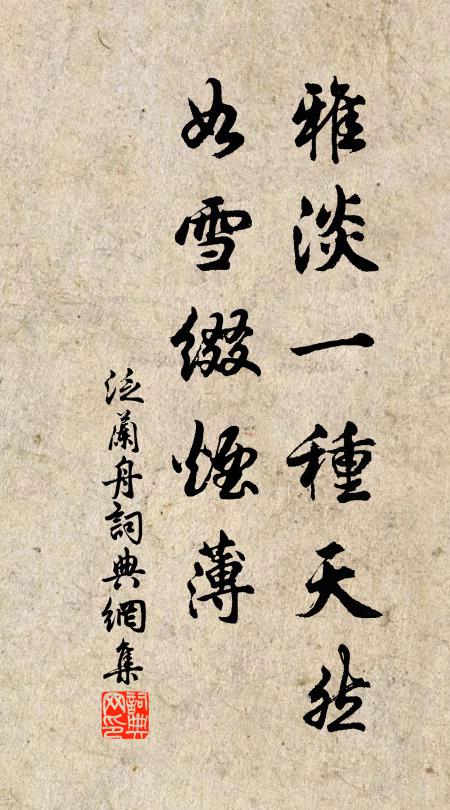 雅淡一種天然
如雪綴煙薄
泛蘭舟詞典網集
詞典
网印